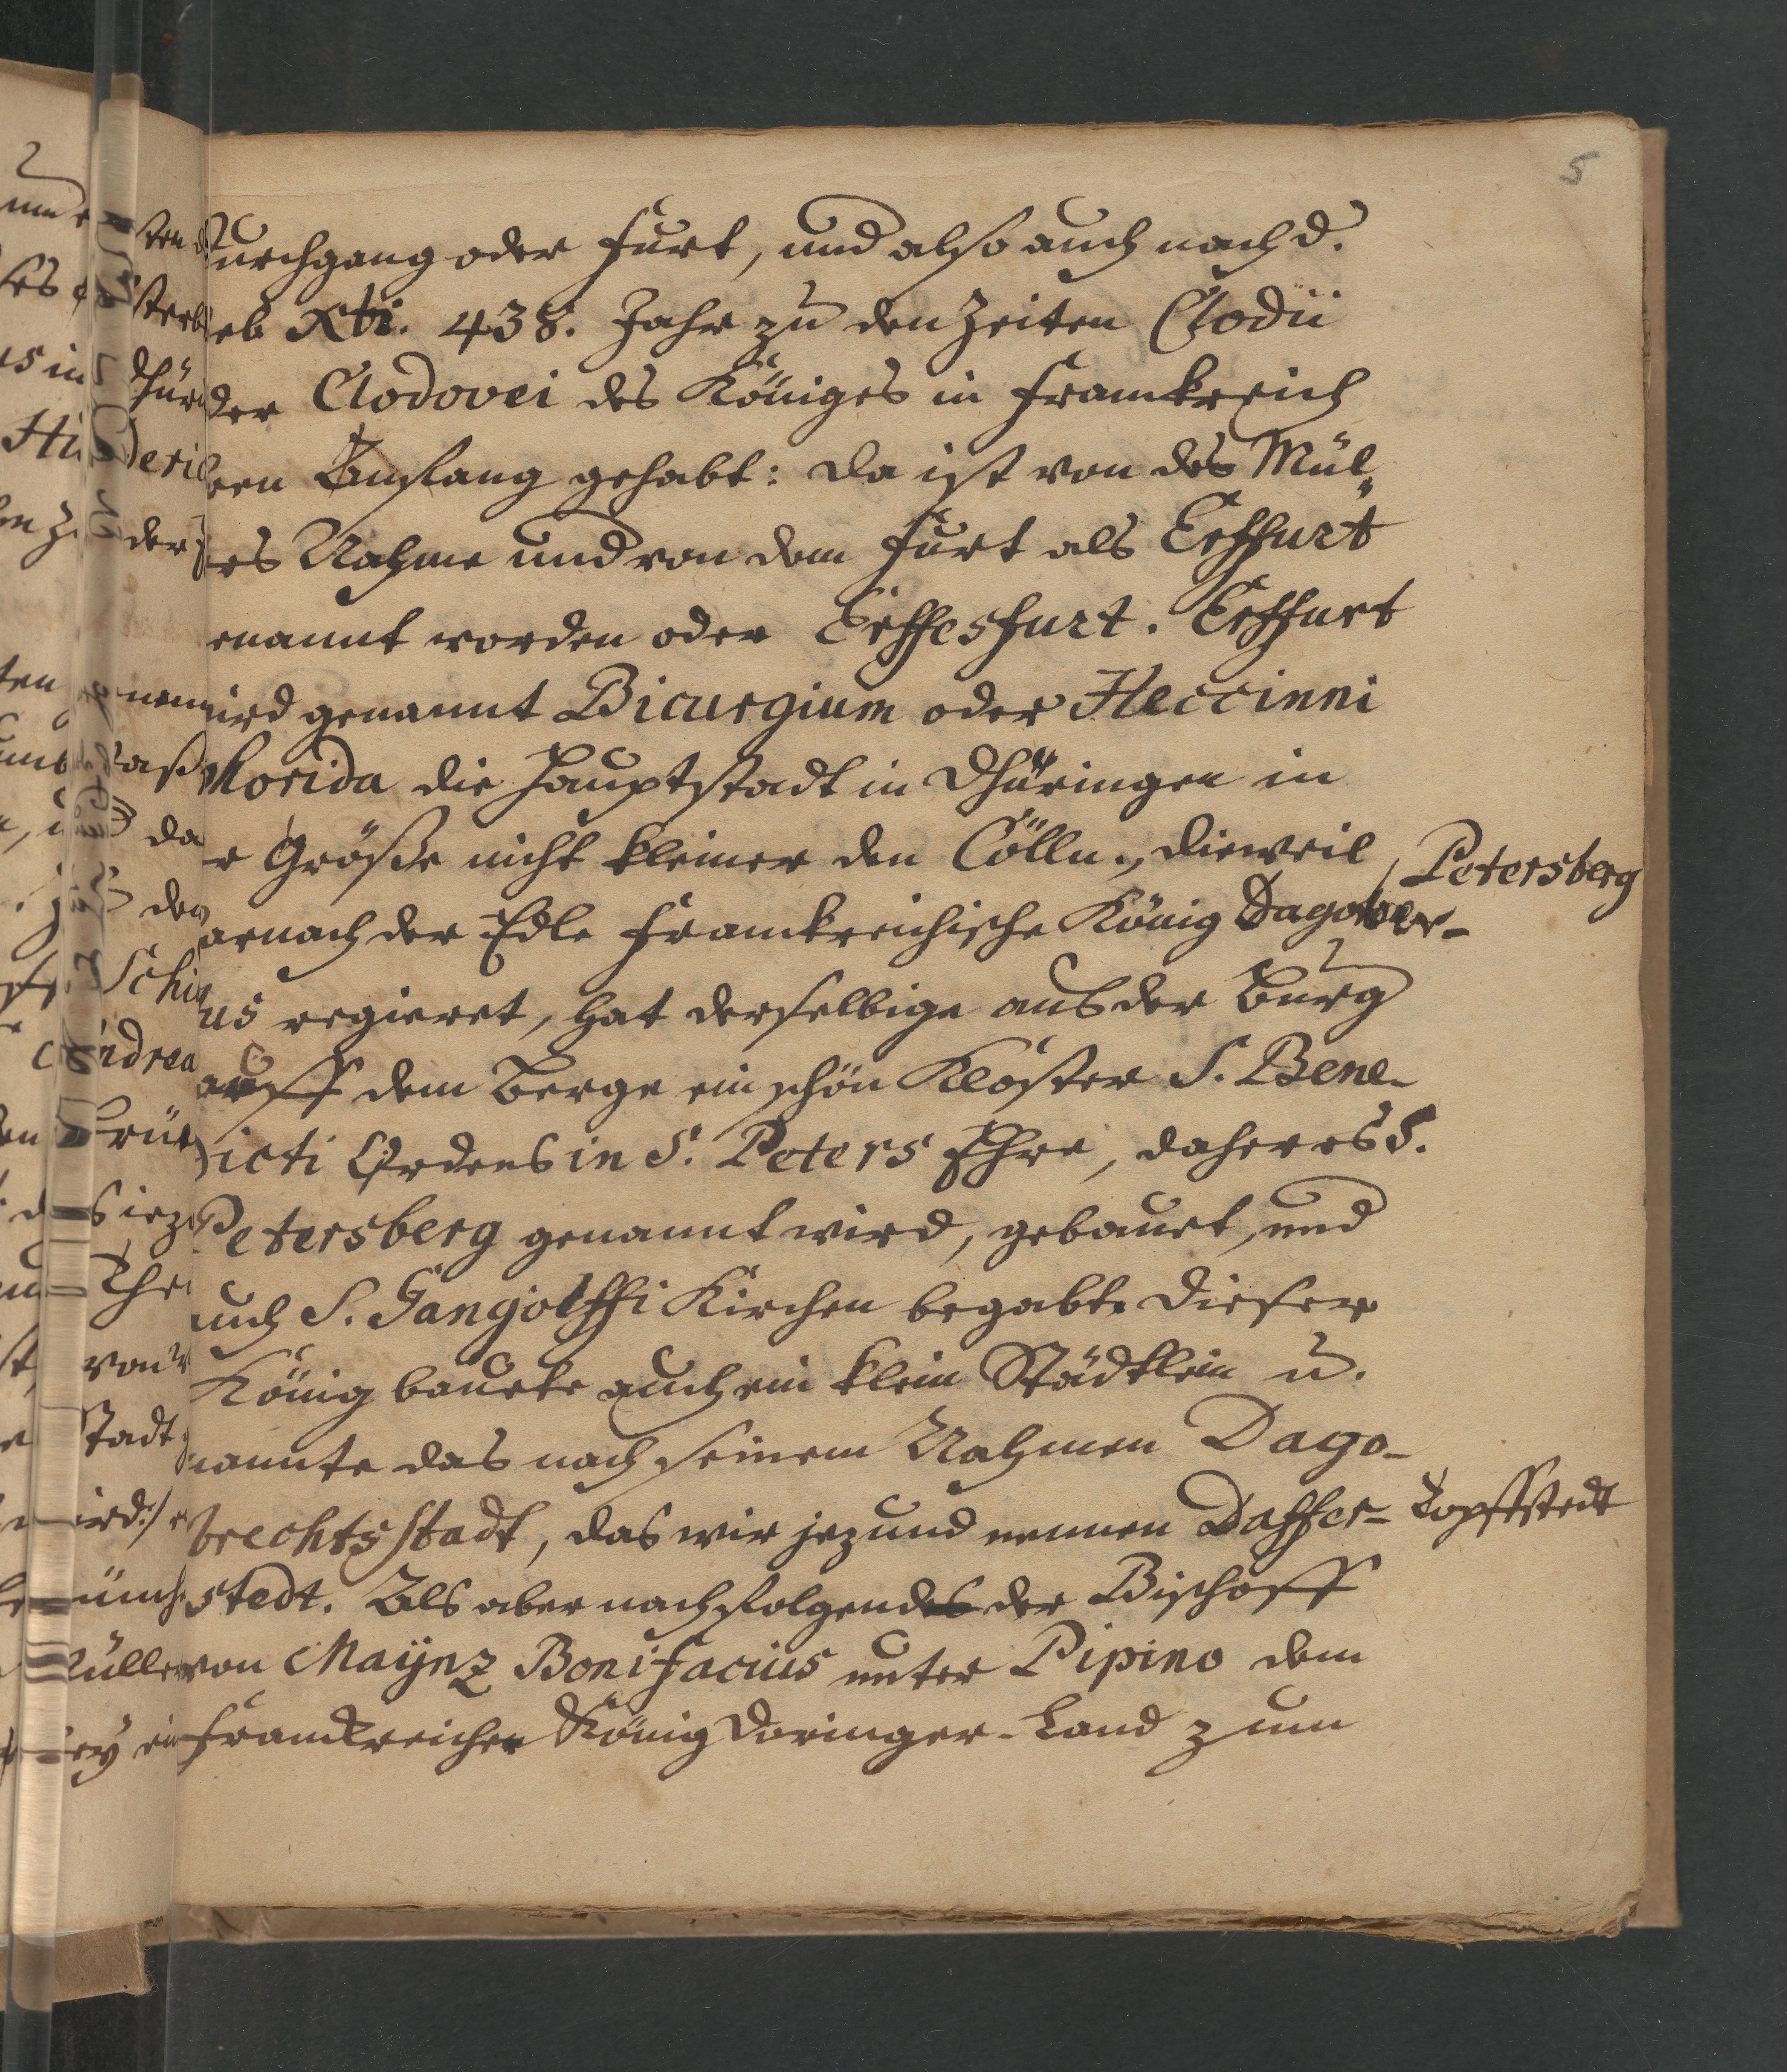 5
durchgang oder Furt, und also auch nach d.
geb Xti. 438. Jahr zu den Zeiten Clodii
der Clodovei des Königes in Franckreich
Anfang gehabt: da ist von des Mül,
ers Nahme und von dem Furt als Erffurt
enannt worden oder Erffesfurt. Erffurt
ird genannt Bicurgium oder Heccinni
Florida die Hauptstadt in Thüringen in
r Größe nicht kleiner den Cölln., dieweil
Petersberg
arnach der Edle Franckreichische König Dagober-
us regieret, hat derselbige aus der Burg
auff dem Berge ein schön Kloster S. Bene-
dicti Ordens in S. Peters Ehre, daher es S.
Petersberg genannt wird, gebauet, und
auch S. Gangolffi Kirchen begabte dieser
König bauete auch ein klein Städtlein u.
nannte das nach seinem Nahmen Dago-
brechtsstadt, das wir jezund nennen Daffer-
Topffstedt
stedt. Als aber nachfolgendes der Bischoff
von Maÿnz Bonifacius unter Pipino dem
Franckreicher König Doringer-Land zum